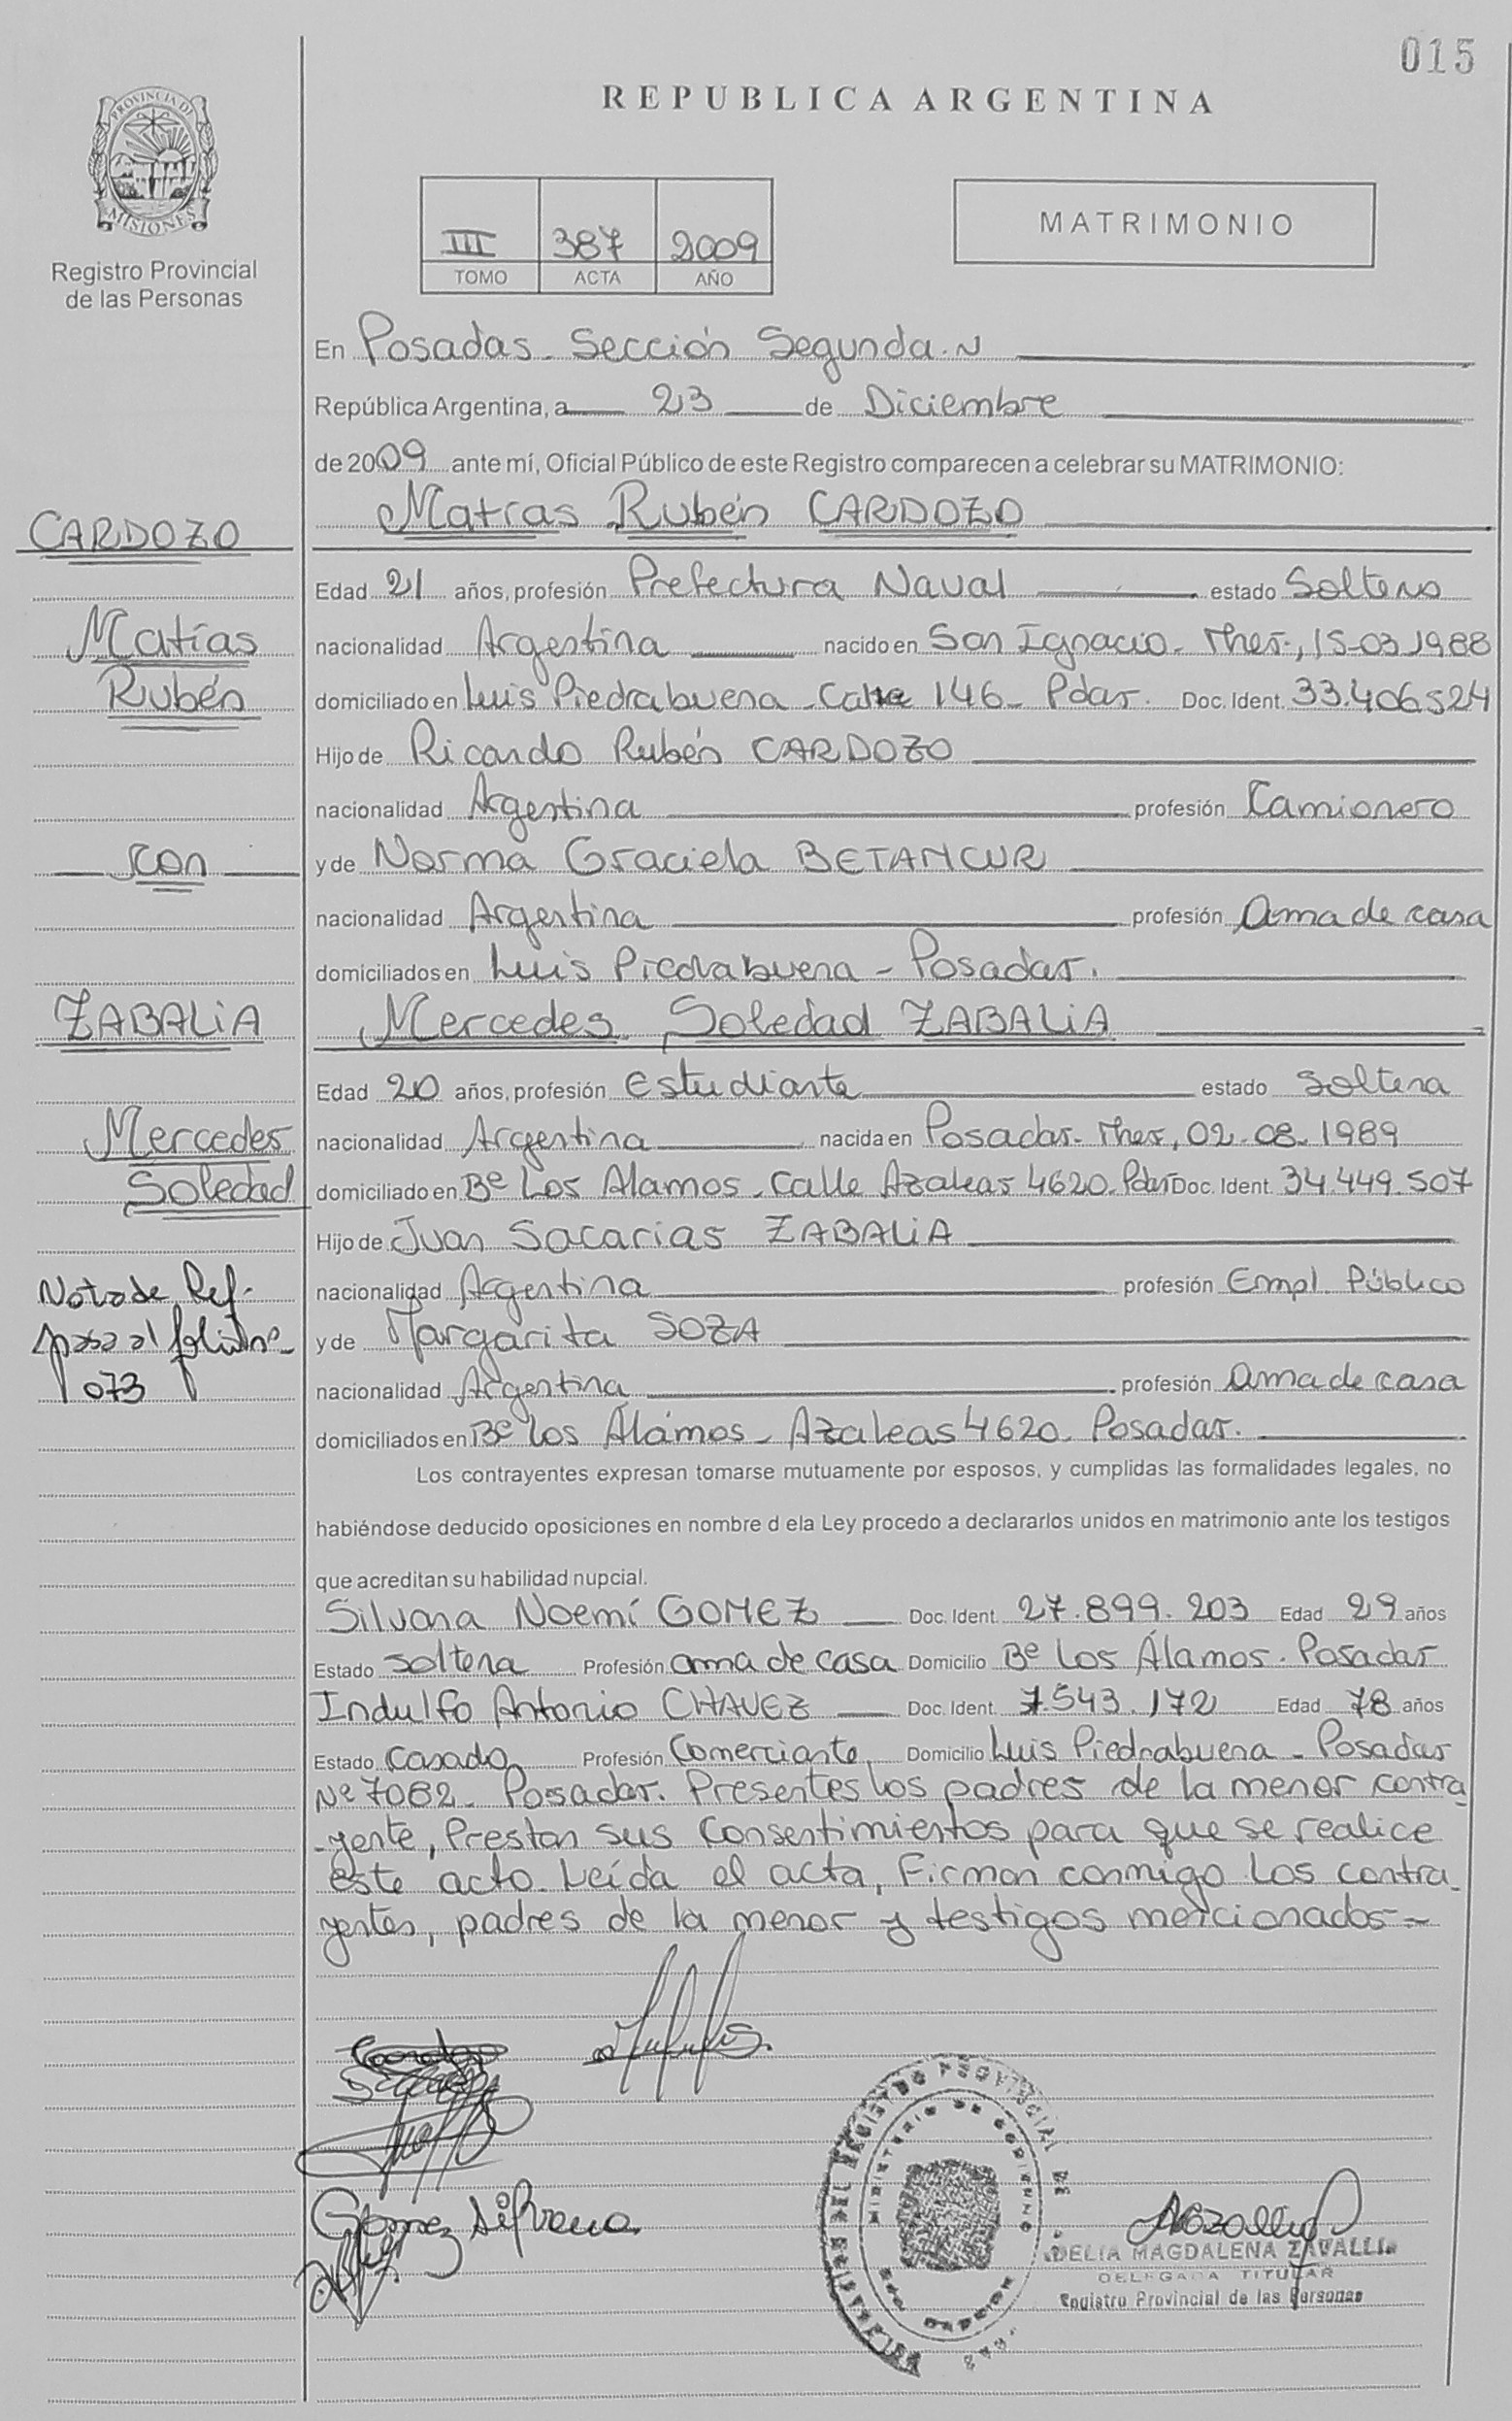 015
REPUBLICA ARGENTINA
PROVINCIA DE
MISIONES
Registro Provincial
de las Personas
III 387 2009
TOMO ACTA AÑO
MATRIMONIO
En Posadas - Sección Segunda
República Argentina, a 23 de Diciembre
de 2009 ante mí, Oficial Público de este Registro comparecen a celebrar su MATRIMONIO:
Matías Rubén CARDOZO
CARDOZO
Edad 21 años, profesión Prefectura Naval estado Soltero
Matías
nacionalidad Argentina nacido en San Ignacio - Mnes, 15-03-1988
Rubén
domiciliado en Luis Piedrabuena - Calle 146 - Pdas. Doc. Ident. 33.406.524
Hijo de Ricardo Rubén CARDOZO
nacionalidad Argentina profesión Camionero
con
y de Norma Graciela BETANCUR
nacionalidad Argentina profesión Ama de casa
domiciliados en Luis Piedrabuena - Posadas.
ZABALIA
Mercedes Soledad ZABALIA
Edad 20 años, profesión Estudiante estado Soltera
Mercedes
nacionalidad Argentina nacida en Posadas - Mnes, 02-08-1989
Soledad
domiciliado en Bº Los Alamos - Calle Azaleas 4620 - Pdas Doc. Ident. 34.449.507
Hijo de Juan Sacarias ZABALIA
Nota de Ref.
nacionalidad Argentina profesión Empl. Público
pasa al folio nº
y de Margarita SOZA
073
nacionalidad Argentina profesión Ama de casa
domiciliados en Bº Los Álamos - Azaleas 4620 - Posadas.
Los contrayentes expresan tomarse mutuamente por esposos, y cumplidas las formalidades legales, no
habiéndose deducido oposiciones en nombre d ela Ley procedo a declararlos unidos en matrimonio ante los testigos
que acreditan su habilidad nupcial.
Silvana Noemí GOMEZ Doc. Ident. 27.899.203 Edad 29 años
Estado Soltera Profesión ama de casa Domicilio Bº Los Álamos - Posadas
Indulfo Antonio CHAVEZ Doc. Ident. 7.543.172 Edad 78 años
Estado Casado Profesión Comerciante Domicilio Luis Piedrabuena - Posadas
Nº 7082 - Posadas. Presentes los padres de la menor contra
-yente, Prestan sus Consentimientos para que se realice
este acto. Leída el acta, Firman conmigo los contra-
yentes, padres de la menor y testigos mencionados -
Gomez Silvana
DELIA MAGDALENA ZAVALLA
DELEGADA TITULAR
Registro Provincial de las Personas